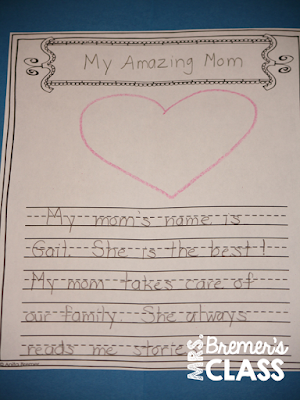 My Amazing Mom
My mom's name is
Gail. She is the best!
My mom takes care of
our family. She always
reads me storie
MRS. BREMER'S
CLASS